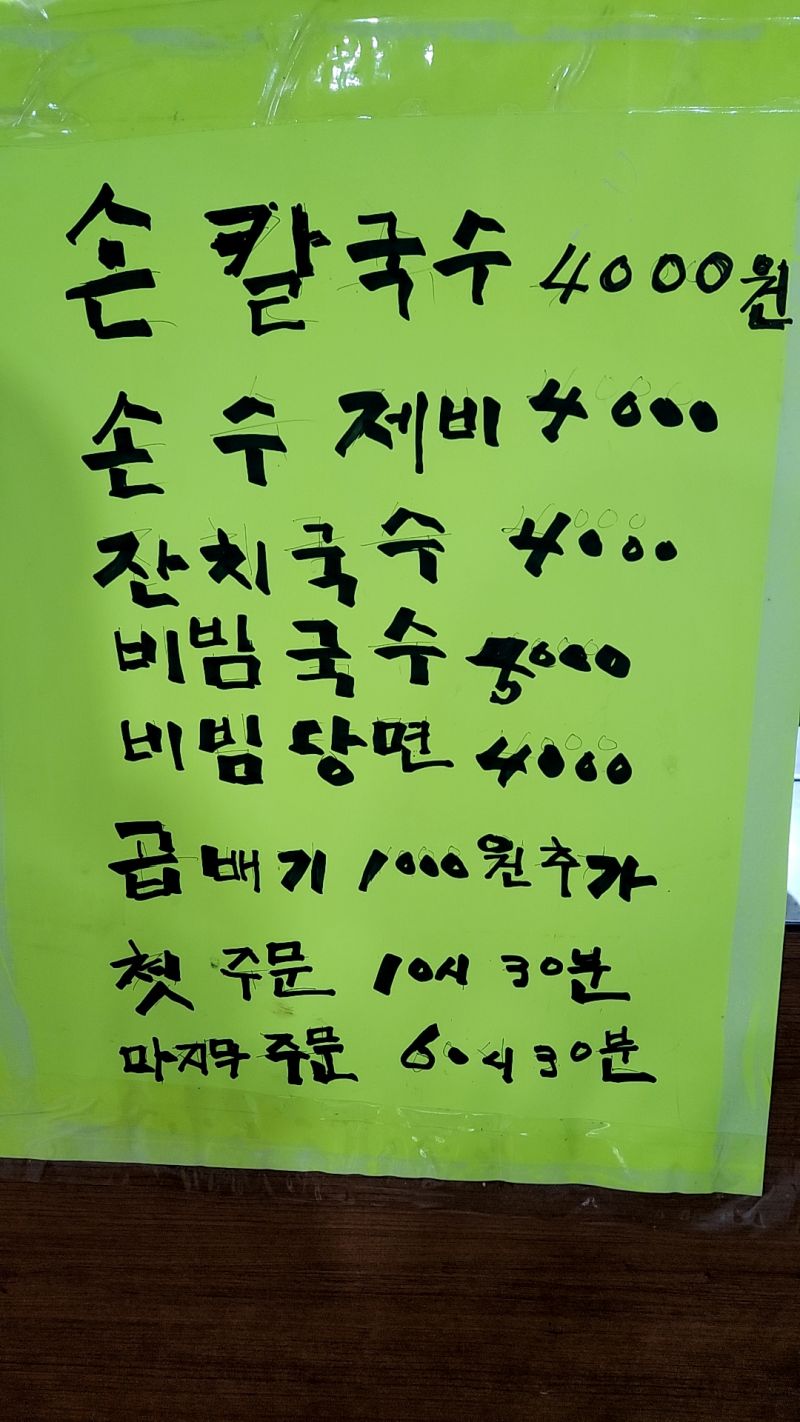 손 칼국수 4000원
손 수 제비 4000
잔치국수 4000
비빔국수 5000
비빔당면 4000
곱배기 1000원 추가
첫 주문 10시 30분
마지막 주문 6시 30분